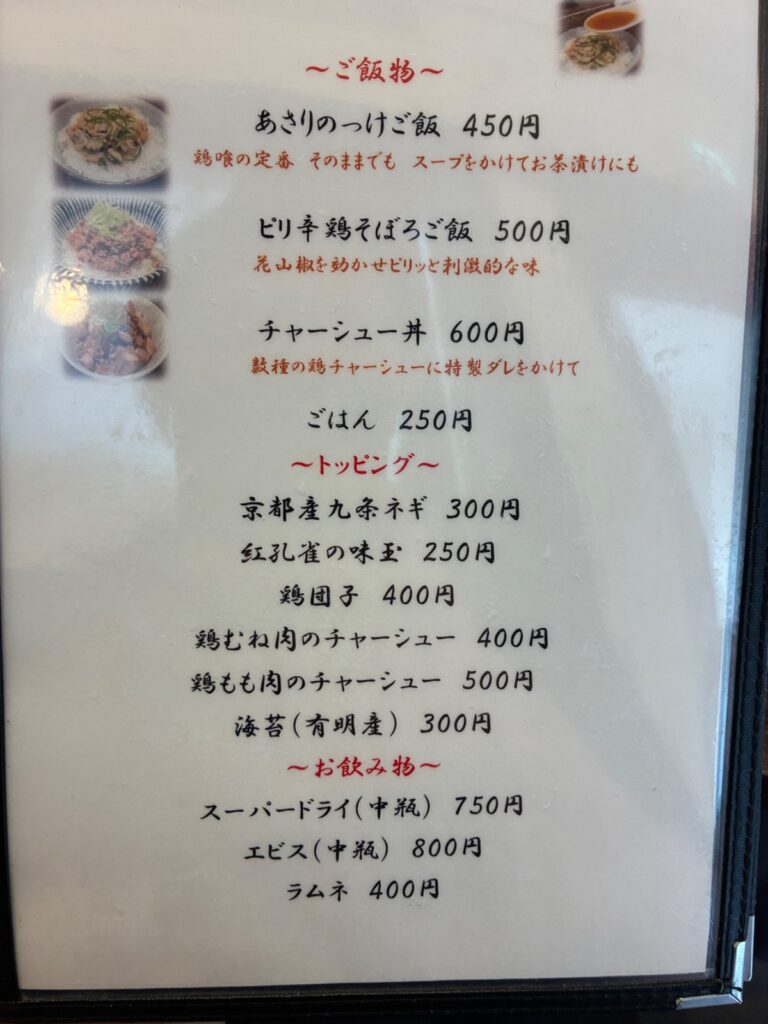 ～ご飯物～
あさりのっけご飯 450円
鶏喰の定番 そのままでも スープをかけてお茶漬けにも
ピリ辛鶏そぼろご飯 500円
花山椒を効かせピリッと刺激的な味
チャーシュー丼 600円
数種の鶏チャーシューに特製ダレをかけて
ごはん 250円
～トッピング～
京都産九条ネギ 300円
紅孔雀の味玉 250円
鶏団子 400円
鶏むね肉のチャーシュー 400円
鶏もも肉のチャーシュー 500円
海苔(有明産) 300円
～お飲み物～
スーパードライ(中瓶) 750円
エビス(中瓶) 800円
ラムネ 400円